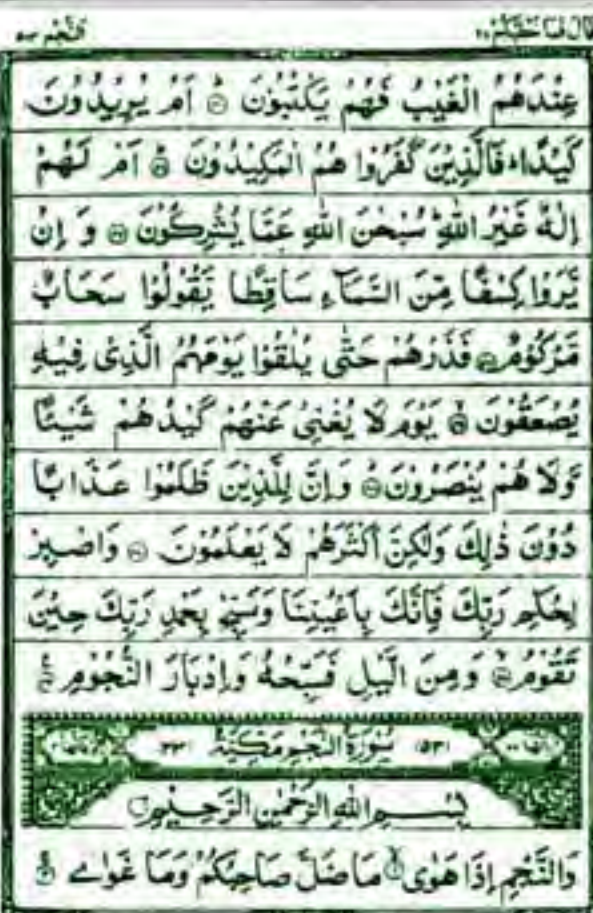 قال فما خطبكم ٢٧
النجم ٥٣
عِنْدَهُمُ الْغَيْبُ فَهُمْ يَكْتُبُوْنَ ۞ اَمْ يُرِيْدُوْنَ
كَيْدًا ؕ فَالَّذِيْنَ كَفَرُوْا هُمُ الْمَكِيْدُوْنَ ۞ اَمْ لَهُمْ
اِلٰهٌ غَيْرُ اللّٰهِ ؕ سُبْحٰنَ اللّٰهِ عَمَّا يُشْرِكُوْنَ ۞ وَ اِنْ
يَّرَوْا كِسْفًا مِّنَ السَّمَآءِ سَاقِطًا يَّقُوْلُوْا سَحَابٌ
مَّرْكُوْمٌ ۞ فَذَرْهُمْ حَتّٰى يُلٰقُوْا يَوْمَهُمُ الَّذِىْ فِيْهِ
يُصْعَقُوْنَ ۞ يَوْمَ لَا يُغْنِىْ عَنْهُمْ كَيْدُهُمْ شَيْئًا
وَّلَا هُمْ يُنْصَرُوْنَ ۞ وَاِنَّ لِلَّذِيْنَ ظَلَمُوْا عَذَابًا
دُوْنَ ذٰلِكَ وَلٰكِنَّ اَكْثَرَهُمْ لَا يَعْلَمُوْنَ ۞ وَاصْبِرْ
لِحُكْمِ رَبِّكَ فَاِنَّكَ بِاَعْيُنِنَا وَسَبِّحْ بِحَمْدِ رَبِّكَ حِيْنَ
تَقُوْمُ ۞ وَمِنَ الَّيْلِ فَسَبِّحْهُ وَاِدْبَارَ النُّجُوْمِ ۞
(٥٣) سُوْرَةُ النَّجْمِ مَكِّيَّةٌ (٢٣)
بِسْمِ اللّٰهِ الرَّحْمٰنِ الرَّحِيْمِ
وَالنَّجْمِ اِذَا هَوٰى ۞ مَا ضَلَّ صَاحِبُكُمْ وَمَا غَوٰى ۞